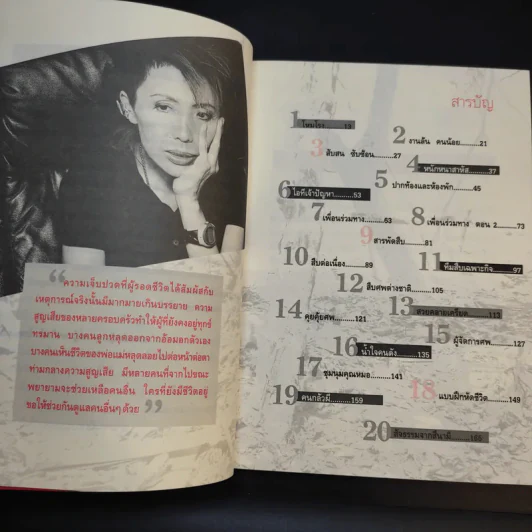 "ความเจ็บปวดที่ผู้รอดชีวิตได้สัมผัสกับ
เหตุการณ์จริงนั้นมีมากมายเกินบรรยาย ความ
สูญเสียของหลายครอบครัวทำให้ผู้ที่ยังคงอยู่ทุกข์
ทรมาน บางคนลูกหลุดออกจากอ้อมอกตัวเอง
บางคนเห็นชีวิตของพ่อแม่หลุดลอยไปต่อหน้าต่อตา
ท่ามกลางความสูญเสีย มีหลายคนที่จากไปขณะ
พยายามจะช่วยเหลือคนอื่น ใครที่ยังมีชีวิตอยู่
ขอให้ช่วยกันดูแลคนอื่นๆ ด้วย"
สารบัญ
1 โหมโรง..........19
2 งานล้น คนน้อย..........21
3 สับสน ซับซ้อน..........27
4 หนักหนาสาหัส..........37
5 ปากท้องและห้องพัก..........45
6 ไอทีเจ้าปัญหา..........53
7 เพื่อนร่วมทาง..........63
8 เพื่อนร่วมทาง ตอน 2..........73
9 สารพัดสืบ..........81
10 สืบต่อเนื่อง..........89
11 ทีมสืบเฉพาะกิจ..........97
12 สืบศพต่างชาติ..........105
13 สวยคลายเครียด..........113
14 คุยคุ้ยศพ..........121
15 ผู้จัดการศพ..........127
16 น้ำใจคนดัง..........135
17 ชุมนุมคุณหมอ..........141
18 แบบฝึกหัดชีวิต..........149
19 คนกลัวผี..........159
20 สัจธรรมจากสึนามิ..........165